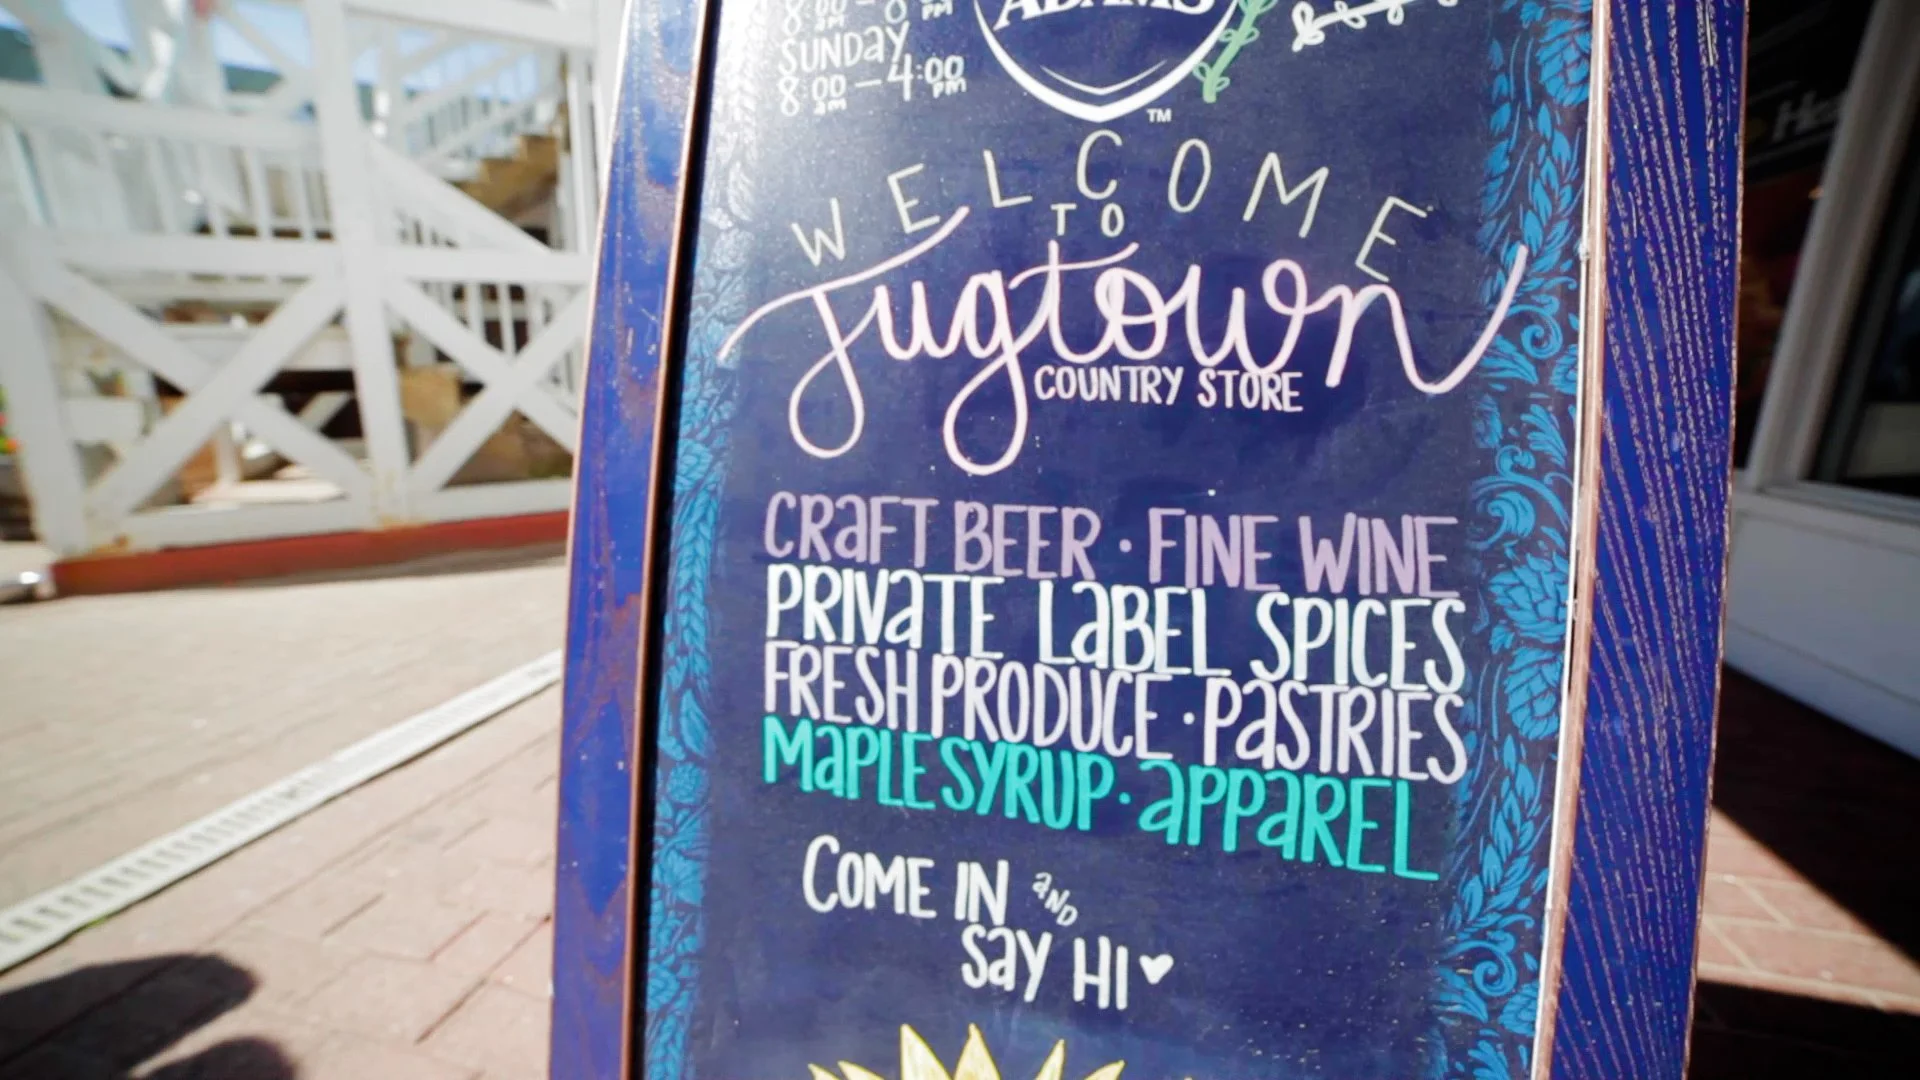 8:00 AM – 8:00 PM
SUNDAY
8:00 AM – 4:00 PM
ADAMS
TM
WELCOME
TO
Jugtown
COUNTRY STORE
CRAFT BEER · FINE WINE
PRIVATE LABEL SPICES
FRESH PRODUCE · PASTRIES
MAPLE SYRUP · APPAREL
COME IN AND
SAY HI